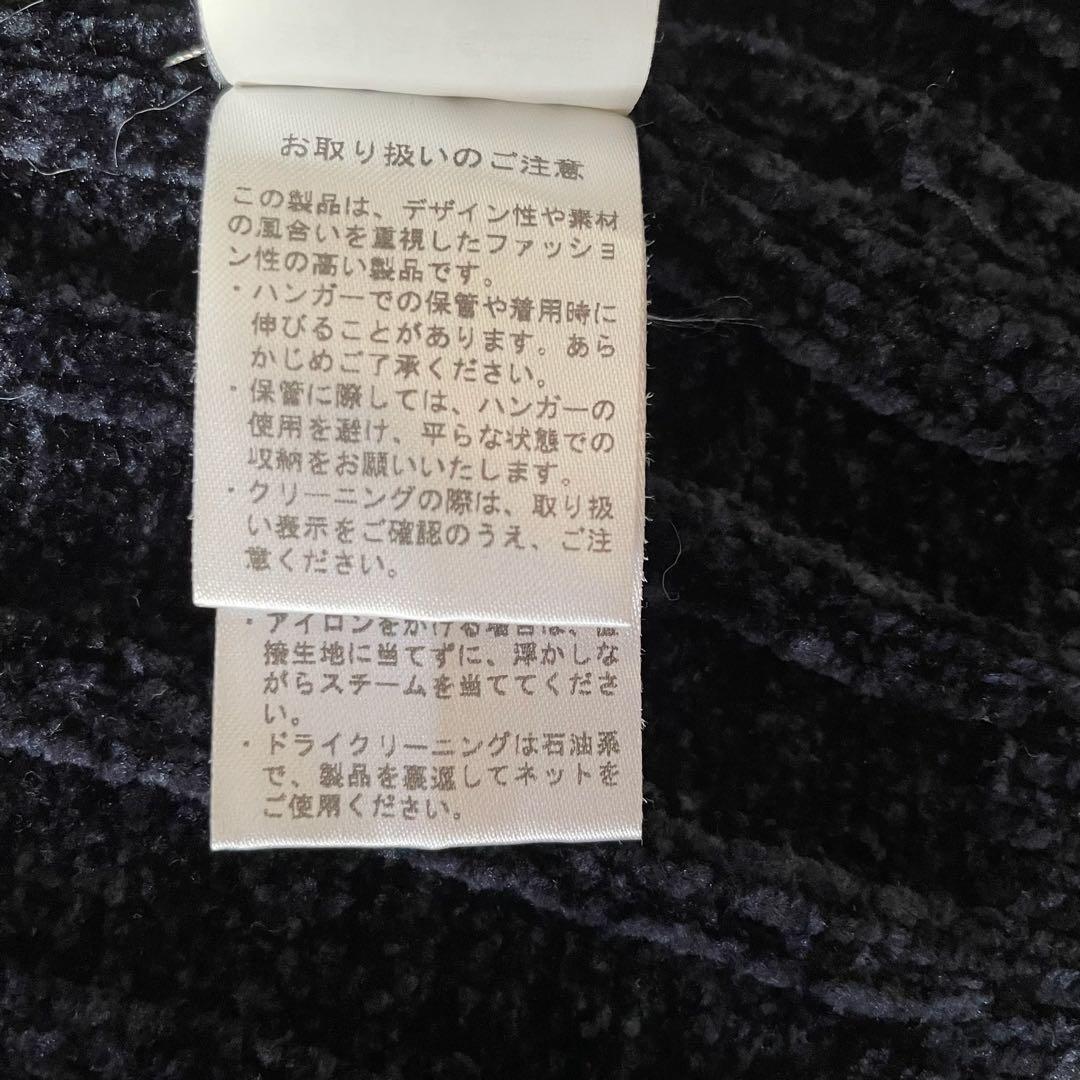 お取り扱いのご注意
この製品は、デザイン性や素材
の風合いを重視したファッショ
ン性の高い製品です。
・ハンガーでの保管や着用時に
伸びることがあります。あら
かじめご了承ください。
・保管に際しては、ハンガーの
使用を避け、平らな状態での
収納をお願いいたします。
・クリーニングの際は、取り扱
い表示をご確認のうえ、ご注
意ください。
・アイロンをかける場合は、直
接生地に当てずに、浮かしな
がらスチームを当ててくださ
い。
・ドライクリーニングは石油系
で、製品を裏返してネットを
ご使用ください。